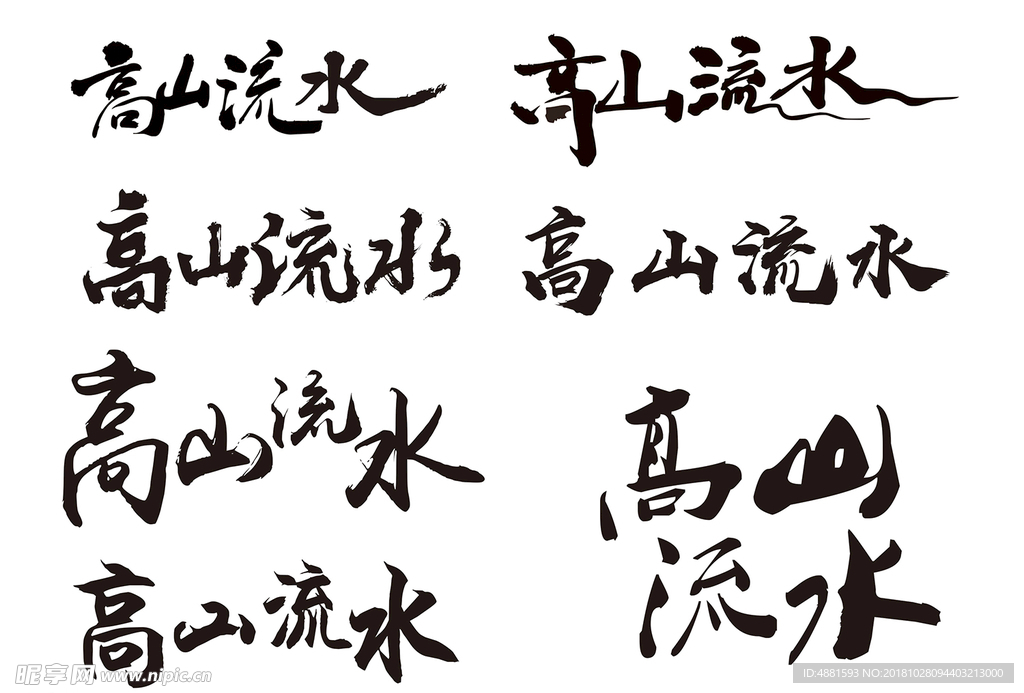 高山流水
高山流水
高山流水
高山流水
高山流水
高山
流水
高山流水
昵享网 www.nipic.cn
ID:4881593 NO:20181028094403213000